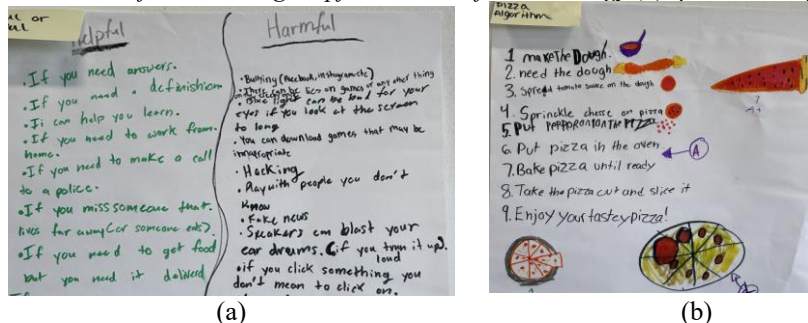 ful
Helpful
• If you need answers.
• If you need a definishion
• Ii can help you learn.
• If you need to work from
home.
• If you need to make a call
to a police.
• If you miss someone that
lives far away(or someone
• If you need to get food
but you need it deliverd
Harmful
• Bullying (Facebook, instagram etc)
• There can be on games or any other thing
• Blue light can be bad for your
eyes if you look at the screen
to long
• You can download games that may be
inapropriate
• Hacking
• Play with people you don't
know
• Fake news
• Speakers can blast your
ear drums. (if you turn it up)
loud
• if you click something you
don't mean to click on.
Pizza
Algorithm
1 make the Dough.
2. need the dough
3. Spread tomato sauce on the dough
4. Sprinckle cheese on pizza
5. Put on the Pizza
6. Put pizza in the oven
A
7. Bake pizza until ready
8. Take the pizza out and slice it
9. Enjoy your tastey pizza!
(a)
(b)